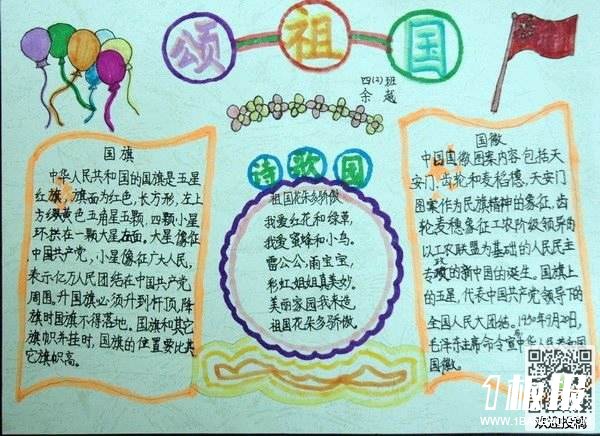 颂祖国
四(2)班
余越
国旗
中华人民共和国的国旗是五星
红旗,旗面为红色,长方形,左上
方缀黄色五角星五颗,四颗小星
环拱在一颗大星左面。大星像征
中国共产党,小星像征广大人民,
表示亿万人民团结在中国共产党
周围。升国旗必须升到杆顶,降
旗时国旗不得落地。国旗和其它
旗帜并挂时,国旗的位置要比其
它旗帜高。
诗歌园
祖国花朵多骄傲
我爱红花和绿草,
我爱蜜蜂和小鸟。
雷公公,雨宝宝,
彩虹姐姐真美妙。
美丽家园我来造,
祖国花朵多骄傲。
国徽
中国国徽图案内容,包括天
安门、齿轮和麦稻穗,天安门
图案作为民族精神的象征,齿
轮麦穗象征工农阶级领导的
以工农联盟为基础的人民民主
专政的新中国的诞生。国旗上
的五星,代表中国共产党领导下的
全国人民大团结。1950年9月20日,
毛泽东主席命令宣布
国徽。
欢迎投稿